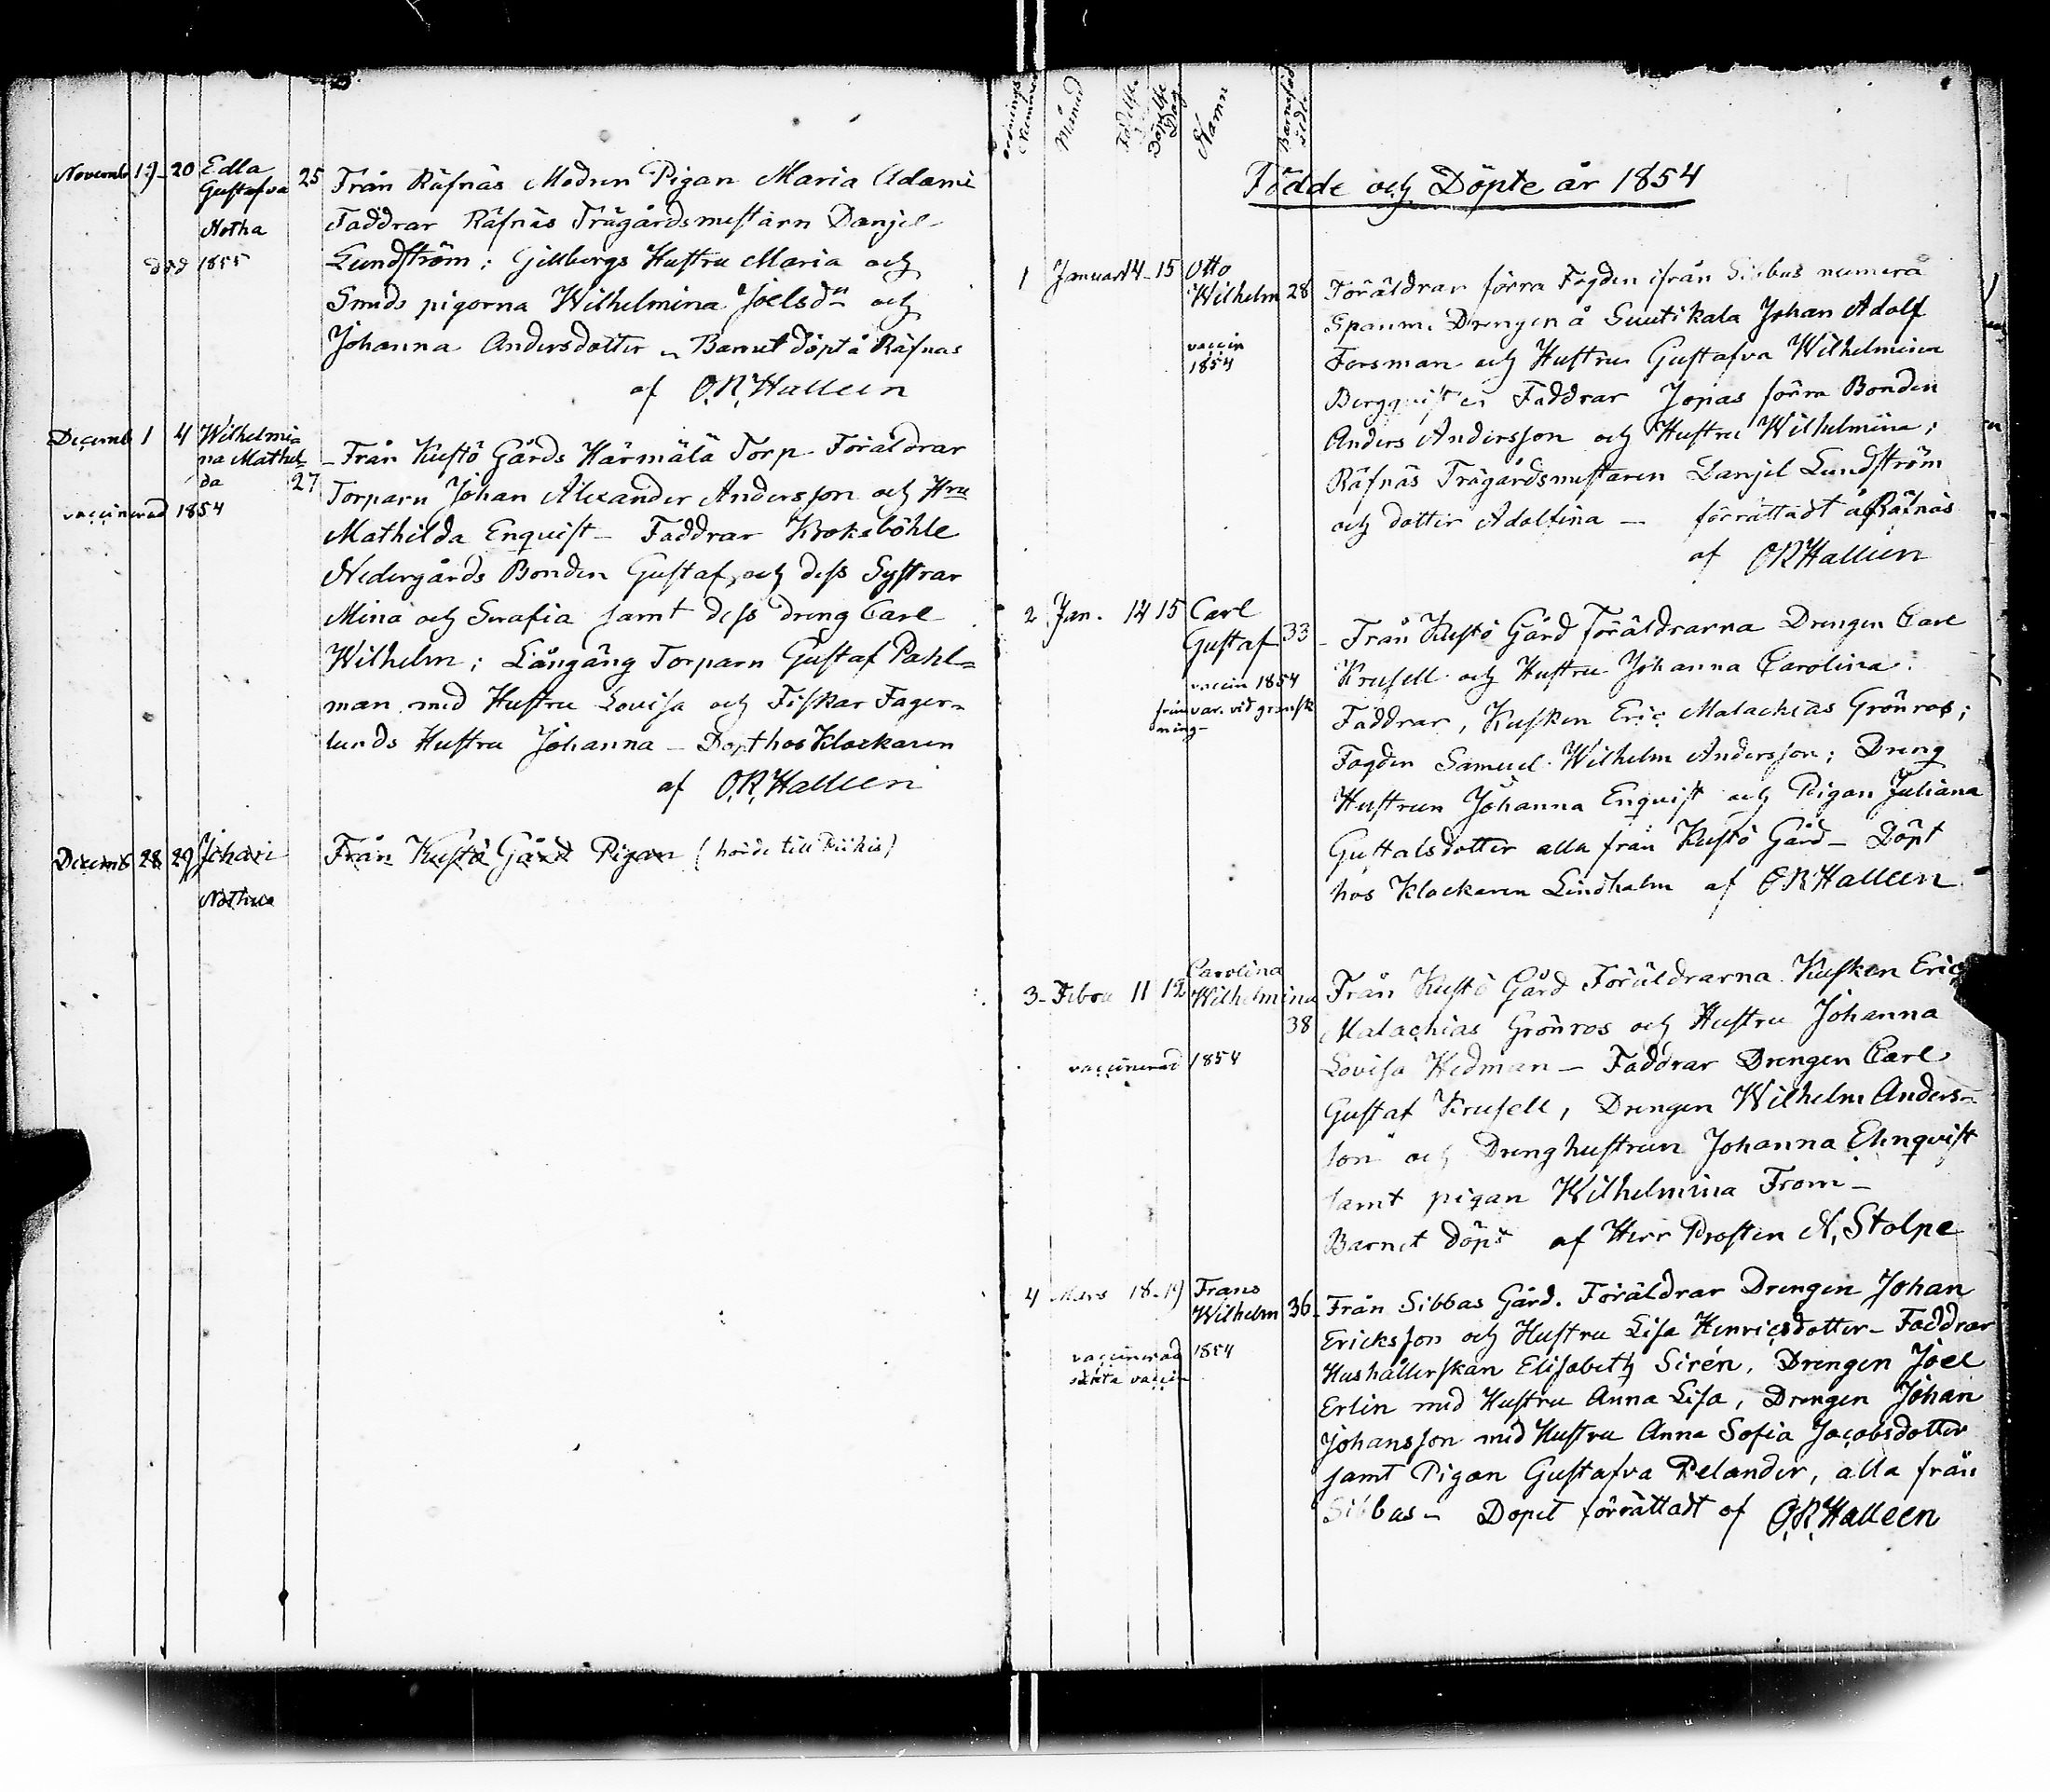 Novemb 19 - 20 Edla Gustafva 25 Från Räfnäs Modren Pigan Maria Adami
Notha Faddrar Räfnäs Trägårdsmestarn Danjel
död 1855 Lundström; Gillbergs Hustru Maria och
Smeds pigorna Wilhelmina Joelsdr och
Johanna Andersdotter - Barnet döpt å Räfnäs
af O.R. Halleen
Decemb 1 4 Wilhelmi
na Mathel=
da 27
vaccinerad 1854
- Från Kustö Gårds Härmälä Torp - Föräldrar
Torparn Johan Alexander Andersson och Hru
Mathilda Enquist - Faddrar Kroksböhle
Nedergårds Bonden Gustaf, och dess Systrar
Mina och Serafia samt dess dreng Carl
Wilhelm; Långäng Torparn Gustaf Pahl=
man med Hustru Lovisa och Fiskar Fager=
lunds Hustru Johanna - Döpt hos Klockaren
af O.R. Halleen
Decemb 28 29 Johan Från Kustö Gård Pigan (hörde till Piikis)
Nothus
Ordnings Nummer
Månad
Födelse
Döpelse Dag
Namn
Barnaföd
Födde och Döpte år 1854
1 Januari 14 - 15 Otto
Wilhelm 28
vaccin
1854
Föräldrar förra Fogden ifrån Sibbas numera
Spanm. Drengen å Suutikala Johan Adolf
Forsman och Hustru Gustafva Wilhelmina
Bergquist Faddrar Jonas förra Bonden
Anders Andersson och Hustru Wilhelmina;
Räfnäs Trägårdsmestaren Danjel Lundström
och dotter Adolfina - förrättadt å Räfnäs
af O R Halleen
2 Jan. 14 15 Carl
Gustaf 33
vaccin 1854
från var. vid gransk
ning -
- Från Kustö Gård föräldrarna Drengen Carl
Krusell och Hustru Johanna Carolina.
Faddrar, Kusken Eric Malachias Grönros;
Fogden Samuel Wilhelm Andersson; Dreng
Hustrun Johanna Enquist och Pigan Juliana
Guttalsdotter alla från Kustö Gård - Döpt
hos Klockaren Lindholm af O R Halleen
3 - Febru 11 12 Carolina
Wilhelmina
38
vaccinerad 1854
Från Kustö Gård Föräldrarna Kusken Eric
Malachias Grönros och Hustru Johanna
Lovisa Hedman - Faddrar Drengen Carl
Gustaf Krusell, Drengen Wilhelm Anders=
son och Drenghustrun Johanna Ehnqvist
samt pigan Wilhelmina From -
Barnet döpt af Herr Prosten N. Stolpe
4 Mars 18 - 19 Frans
Wilhelm 36
vaccinerad 1854
vaccin
- Från Sibbas Gård. Föräldrar Drengen Johan
Ericksson och Hustru Lisa Henricsdotter - Faddrar
Hushållerskan Elisabeth Sirén, Drengen Joel
Erlin med Hustru Anna Lisa, Drengen Johan
Johansson med Hustru Anna Sofia Jacobsdotter
samt Pigan Gustafva Pelander, alla från
Sibbas - Dopet förrättadt af O.R. Halleen